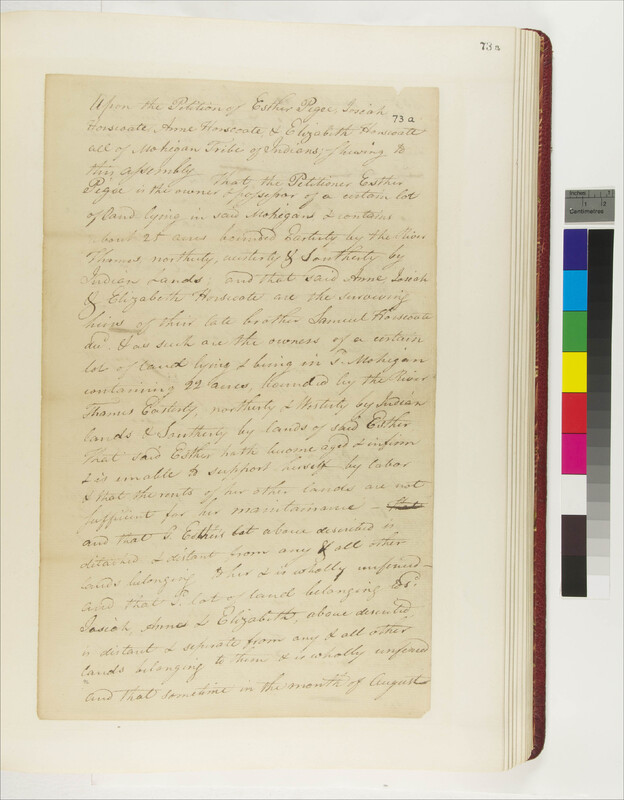 73a
Upon the Petition of Esther Pigee, Josiah
73a
Horscoate, Anne Horscoate, & Elizabeth Horscoate
all of Mohegan Tribe of Indians, shewing to
this Assembly That, the Petitioner Esther
Pigee is the owner & possessor of a certain lot
of land lying in said Mohegans & contains
about 21 acres bounded Easterly by the River
Thames, northerly, westerly & Southerly by
Indian Lands, and that said Anne, Josiah
& Elizabeth Horscoate are the surviving
heirs of their late brother Samuel Horscoate
decd. & as such are the owners of a certain
lot of land lying & being in sd. Mohegan
containing 22 acres, bounded by the River
Thames Easterly, northerly & Westerly by Indian
lands & Southerly by lands of said Esther
That said Esther hath become aged & infirm
& is unable to support herself by labor
& that the rents of her other lands are not
sufficient for her maintainance - that
and that sd. Esthers lot above described is
detached & distant from any & all other
lands belonging to her & is wholly unfenced -
and that sd. lot of land belonging to sd.
Josiah, Anne & Elizabeth, above described
is distant & seperate from any & all other
lands belonging to them & is wholly unfenced
and that sometime in the month of August
Inches 1 2
Centimetres